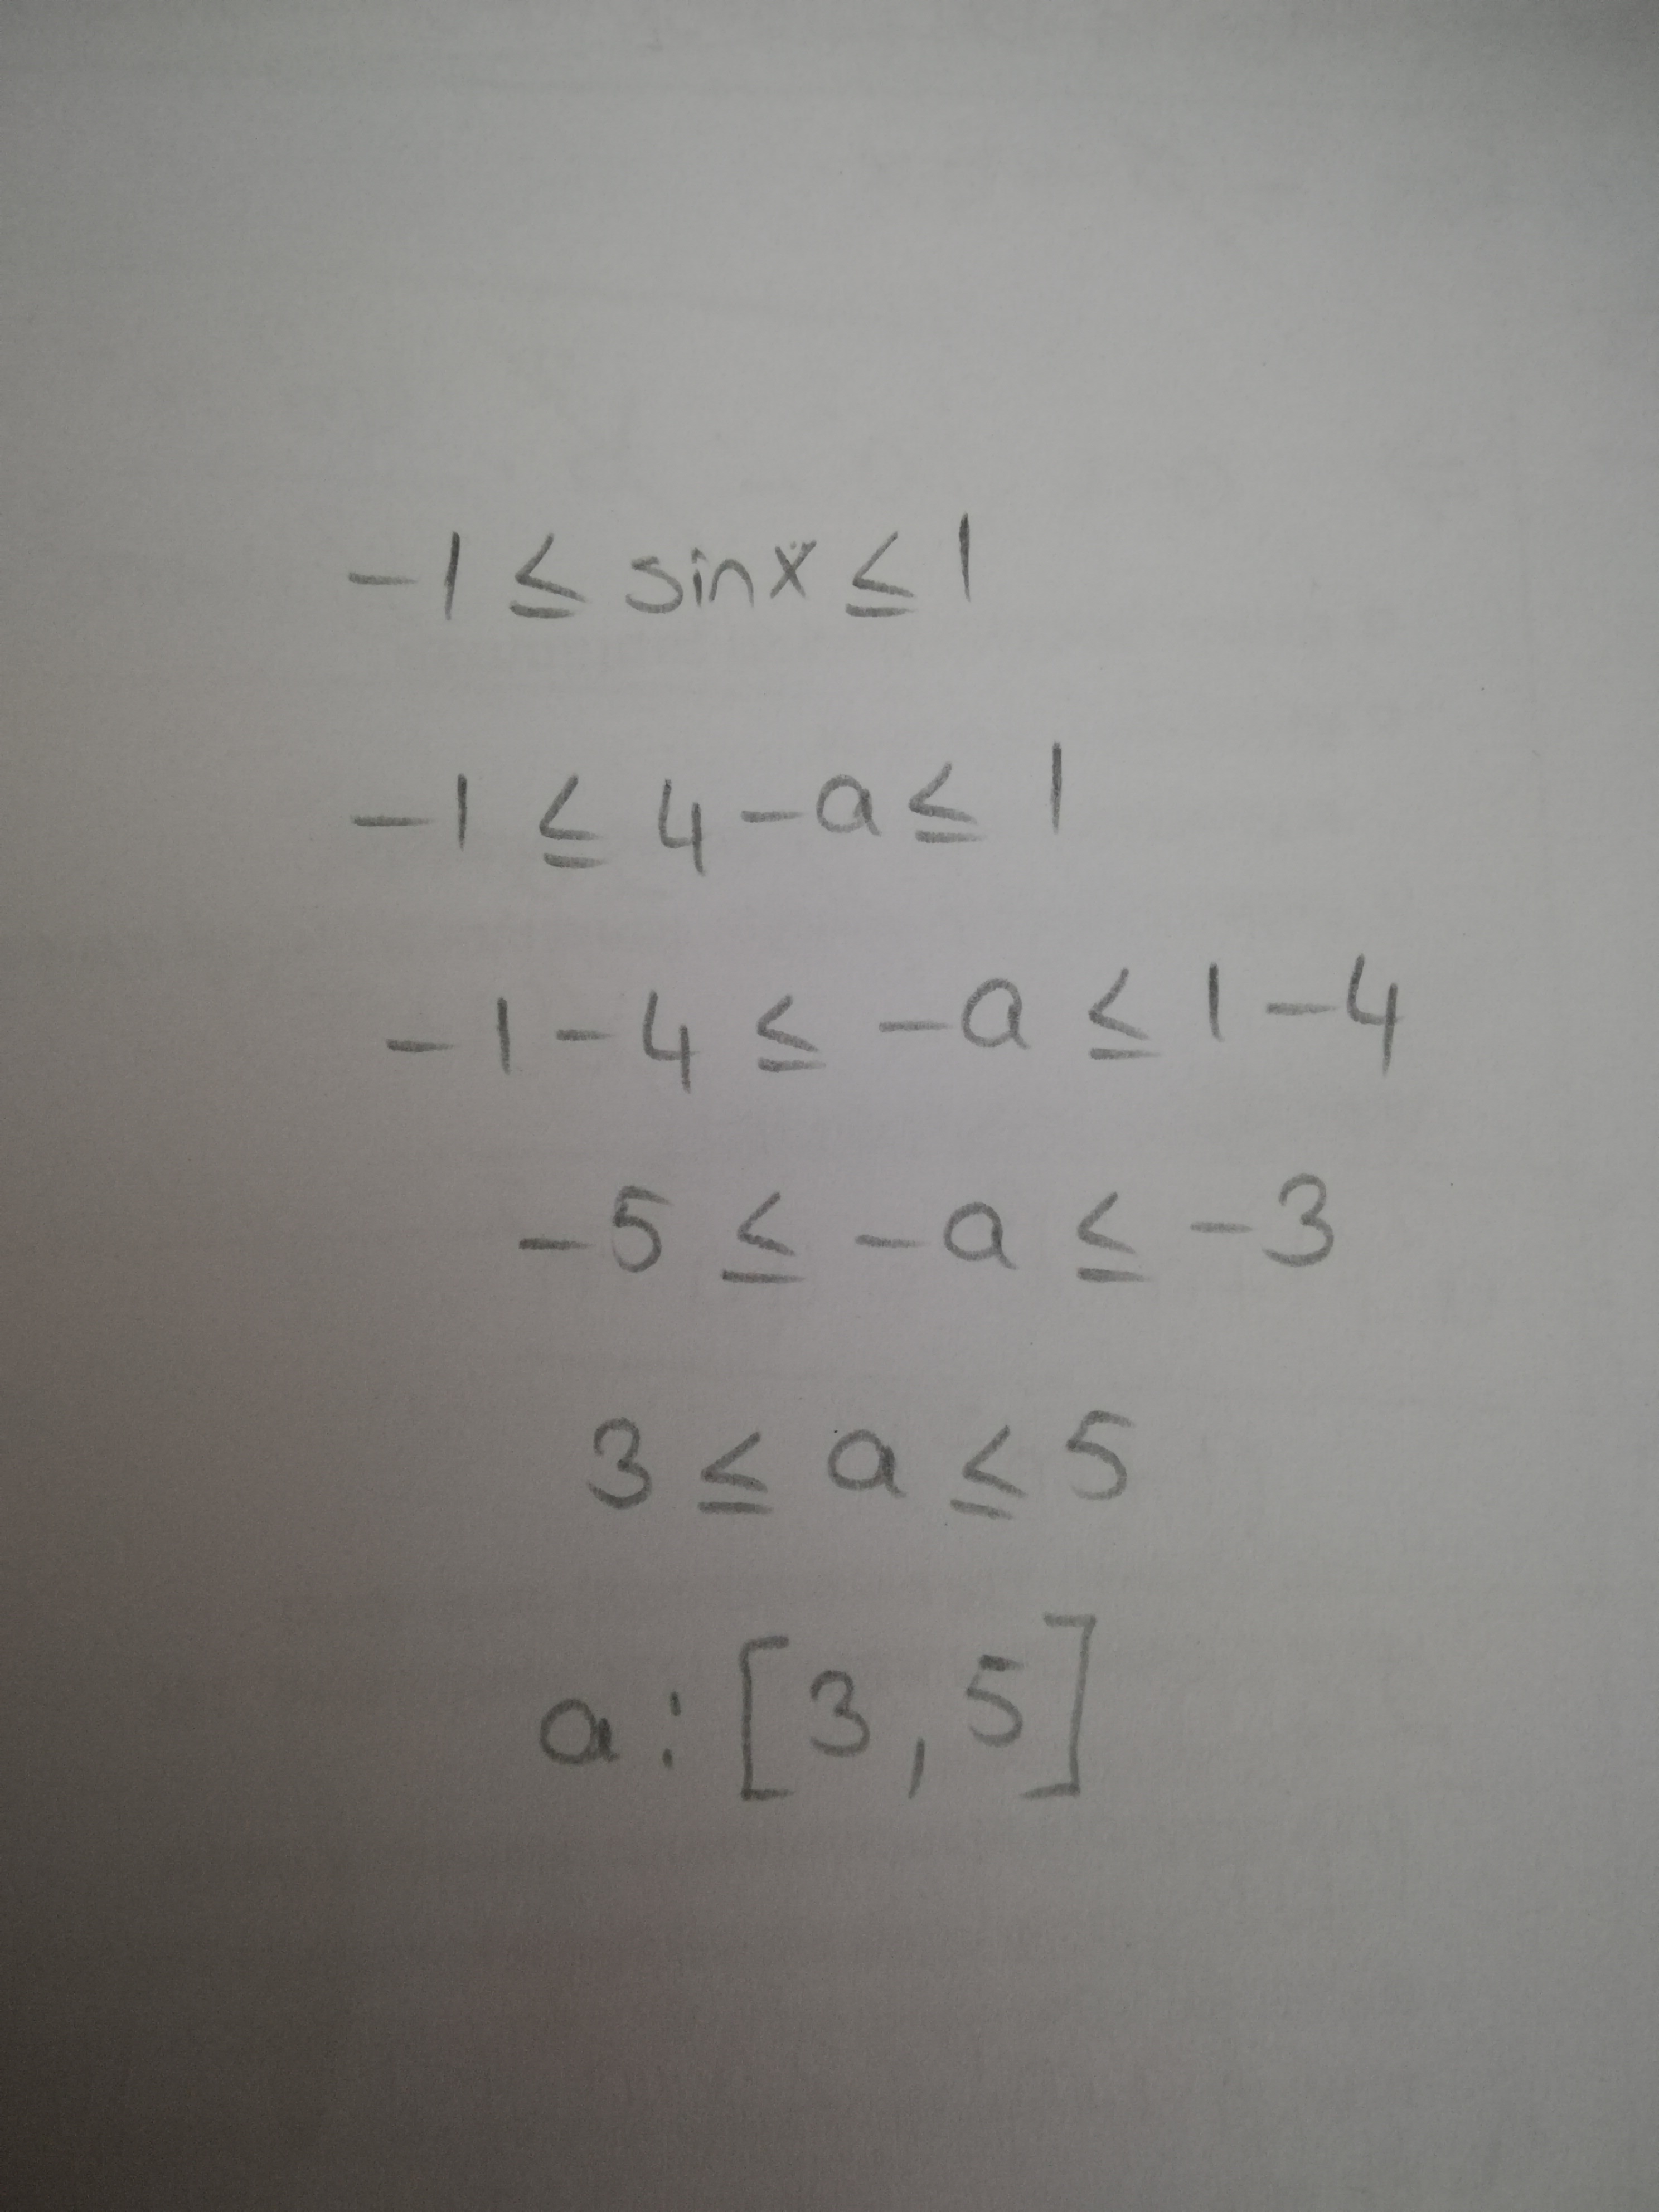 -1 ≤ sinx ≤ 1
-1 ≤ 4-a ≤ 1
-1-4 ≤ -a ≤ 1-4
-5 ≤ -a ≤ -3
3 ≤ a ≤ 5
a: [3,5]